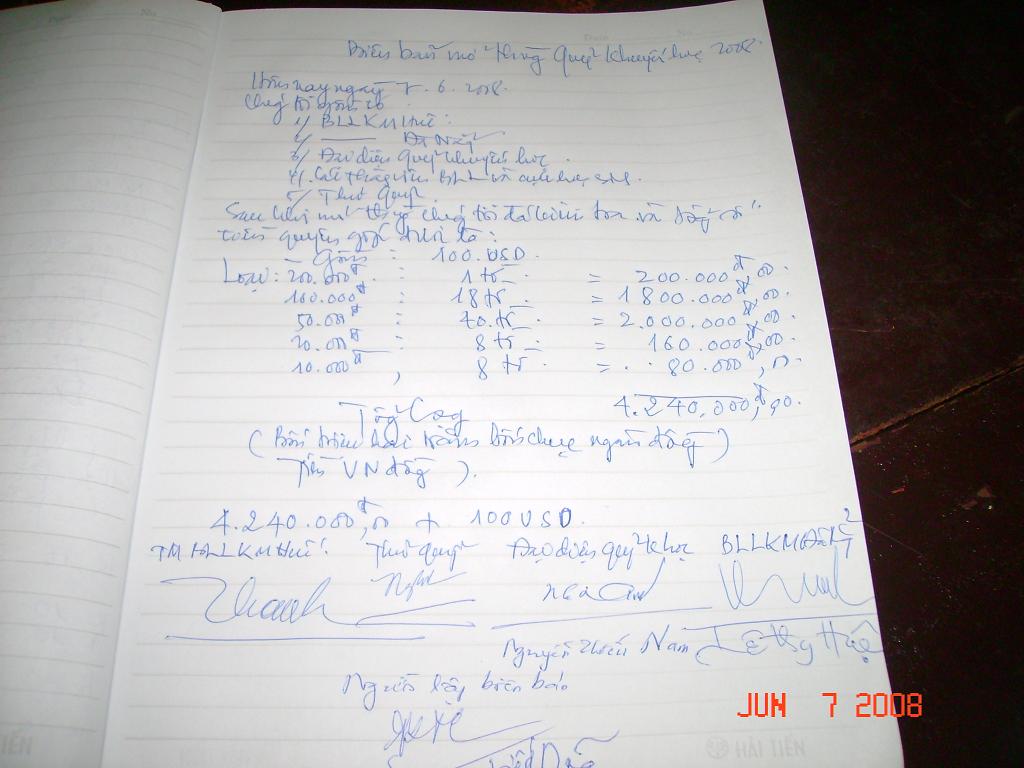 Biên bản mở thùng quỹ khuyến học 2008.
Hôm nay ngày 7.6.2008.
Chúng tôi gồm có
1/ BLLKM Huế:
2/ —— Đà Nẵng
3/ Đại diện quỹ khuyến học.
4/. Các thành viên BLL và
5/ Thủ quỹ.
Sau khi mở thùng chúng tôi đã kiểm tra và tổng số
tiền quyên góp được là:
Gồm : 100.USD.
Loại: 200.000đ : 1 tờ = 200.000đ,00.
100.000đ : 18 tờ = 1 800.000đ,00.
50.000đ : 40. tờ = 2.000.000đ,00.
20.000đ : 8 tờ = 160.000đ,00
10.000đ, 8 tờ = 80.000,00
Tổng Cộng 4.240.000,đ00.
(Bốn triệu hai trăm bốn chục ngàn đồng)
Tiền VN đồng).
4.240.000đ,00 + 100USD.
TM BLLKM Huế. Thủ quỹ Đại diện quỹ k học BLLKM
Thanh
Nguyễn Thiếu Nam Lê Thy Huệ
Người lập biên bản
JUN 7 2008
HẢI TIẾN